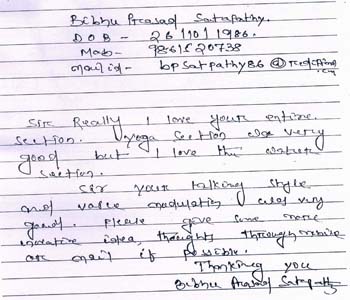 Bibhu Prasad Satapathy.
DOB - 26/10/1986.
Mob- 
mail id- bpsatpathy86@rediffmail
Sir Really I love your entire
section. yoga section was very
good but I love the
section.
Sir your talking style
and voice modulation was very
good. please give some more
idea, thoughts through mobile
or mail if possible.
Thanking you
Bibhu Prasad Satapathy